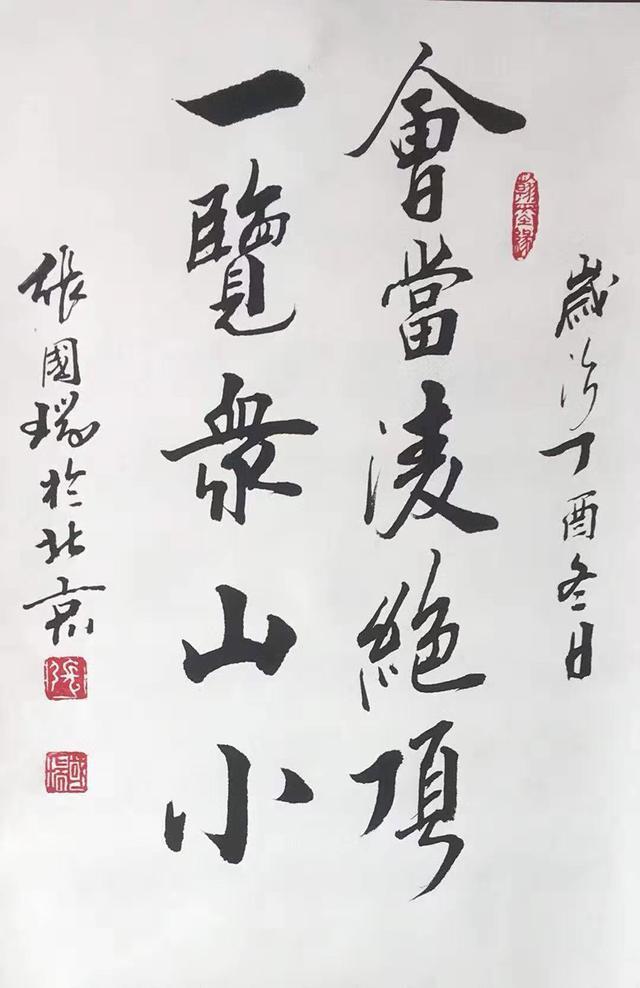 歲次丁酉冬日
翰墨缘
會當淩絶頂
一覽衆山小
張國瑞於北京
張